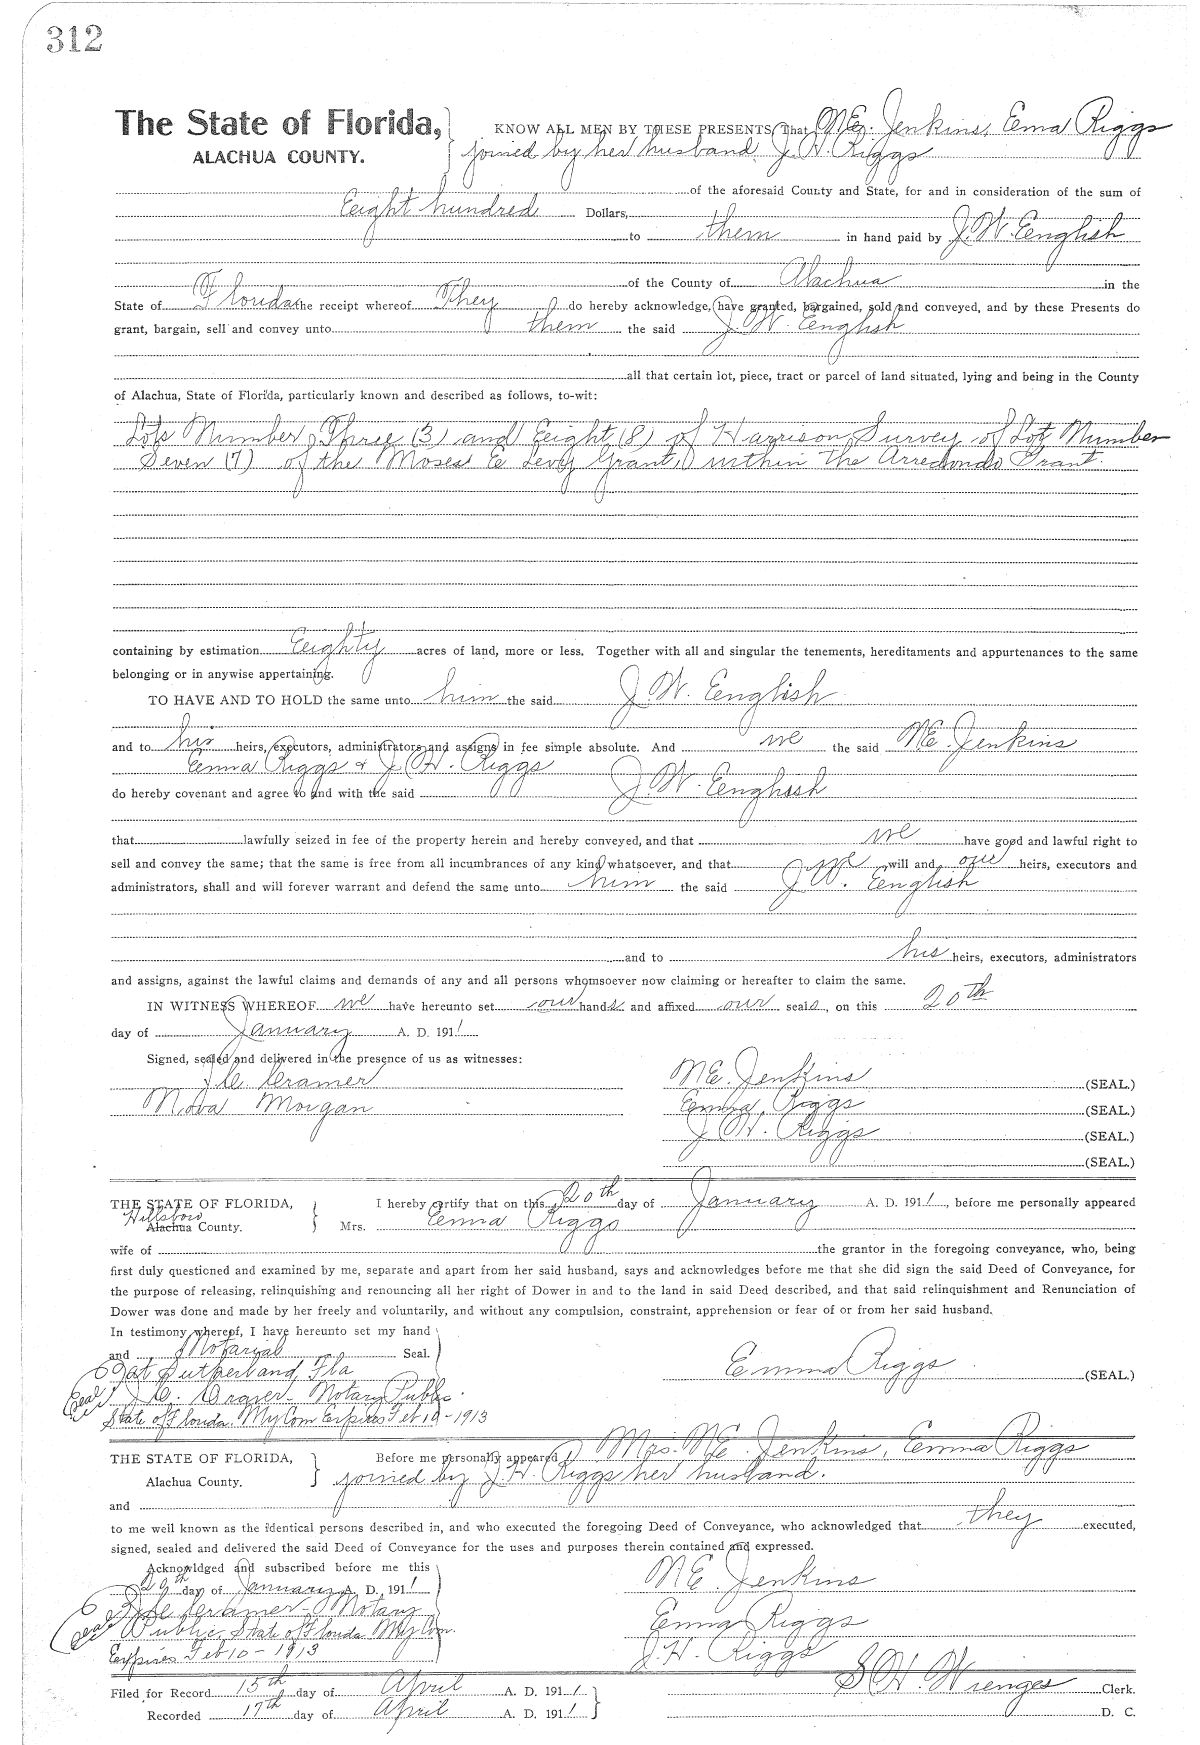 312
The State of Florida, KNOW ALL MEN BY THESE PRESENTS, That M.E. Jenkins, Emma Riggs
ALACHUA COUNTY. joined by her husband J. H. Riggs
of the aforesaid County and State, for and in consideration of the sum of
Eight hundred Dollars,
to them in hand paid by J. W. Eenglish
of the County of Alachua in the
State of Florida the receipt whereof They do hereby acknowledge, have granted, bargained, sold and conveyed, and by these Presents do
grant, bargain, sell and convey unto them the said J. W. Eenglish
all that certain lot, piece, tract or parcel of land situated, lying and being in the County
of Alachua, State of Florida, particularly known and described as follows, to-wit:
Lots Number Three (3) and Eight (8) of Harrison Survey of Lot Number
Seven (7) of the Moses E Levy Grant, within the Arredondo Grant.
containing by estimation Eighty acres of land, more or less. Together with all and singular the tenements, hereditaments and appurtenances to the same
belonging or in anywise appertaining.
TO HAVE AND TO HOLD the same unto him the said J. W. Eenglish
and to his heirs, executors, administrators and assigns in fee simple absolute. And we the said M.E. Jenkins
Emma Riggs & J. H. Riggs
do hereby covenant and agree to and with the said J. W. Eenglish
that lawfully seized in fee of the property herein and hereby conveyed, and that we have good and lawful right to
sell and convey the same; that the same is free from all incumbrances of any kind whatsoever, and that we will and our heirs, executors and
administrators, shall and will forever warrant and defend the same unto him the said J. W. Eenglish
and to his heirs, executors, administrators
and assigns, against the lawful claims and demands of any and all persons whomsoever now claiming or hereafter to claim the same.
IN WITNESS WHEREOF we have hereunto set our hands and affixed our seals, on this 20th
day of January A. D. 1911
Signed, sealed and delivered in the presence of us as witnesses:
J.C. Cramer M.E. Jenkins (SEAL.)
Nova Morgan Emma Riggs (SEAL.)
J. H. Riggs (SEAL.)
(SEAL.)
THE STATE OF FLORIDA, I hereby certify that on this 20th day of January A. D. 1911, before me personally appeared
Hillsboro
Alachua County. Mrs. Emma Riggs
wife of the grantor in the foregoing conveyance, who, being
first duly questioned and examined by me, separate and apart from her said husband, says and acknowledges before me that she did sign the said Deed of Conveyance, for
the purpose of releasing, relinquishing and renouncing all her right of Dower in and to the land in said Deed described, and that said relinquishment and Renunciation of
Dower was done and made by her freely and voluntarily, and without any compulsion, constraint, apprehension or fear of or from her said husband.
In testimony whereof, I have hereunto set my hand
and Notarial Seal.
at Sutherland, Fla Emma Riggs (SEAL.)
Seal J.C. Notary Public
State of Florida My Com Expires Feb 10-1913
THE STATE OF FLORIDA, Before me personally appeared Mrs. M.E. Jenkins, Emma Riggs
Alachua County. joined by J. H. Riggs her husband.
and
to me well known as the identical persons described in, and who executed the foregoing Deed of Conveyance, who acknowledged that they executed,
signed, sealed and delivered the said Deed of Conveyance for the uses and purposes therein contained and expressed.
Acknowldged and subscribed before me this
day of January A. D. 1911 M.E. Jenkins
J.C. Cramer - Notary Emma Riggs
Seal Public, State of Florida My Com. J. H. Riggs
Exspires Feb 10-1913
Filed for Record 15th day of April A. D. 1911 S. H. Wienges Clerk.
Recorded 17th day of April A. D. 1911 D. C.